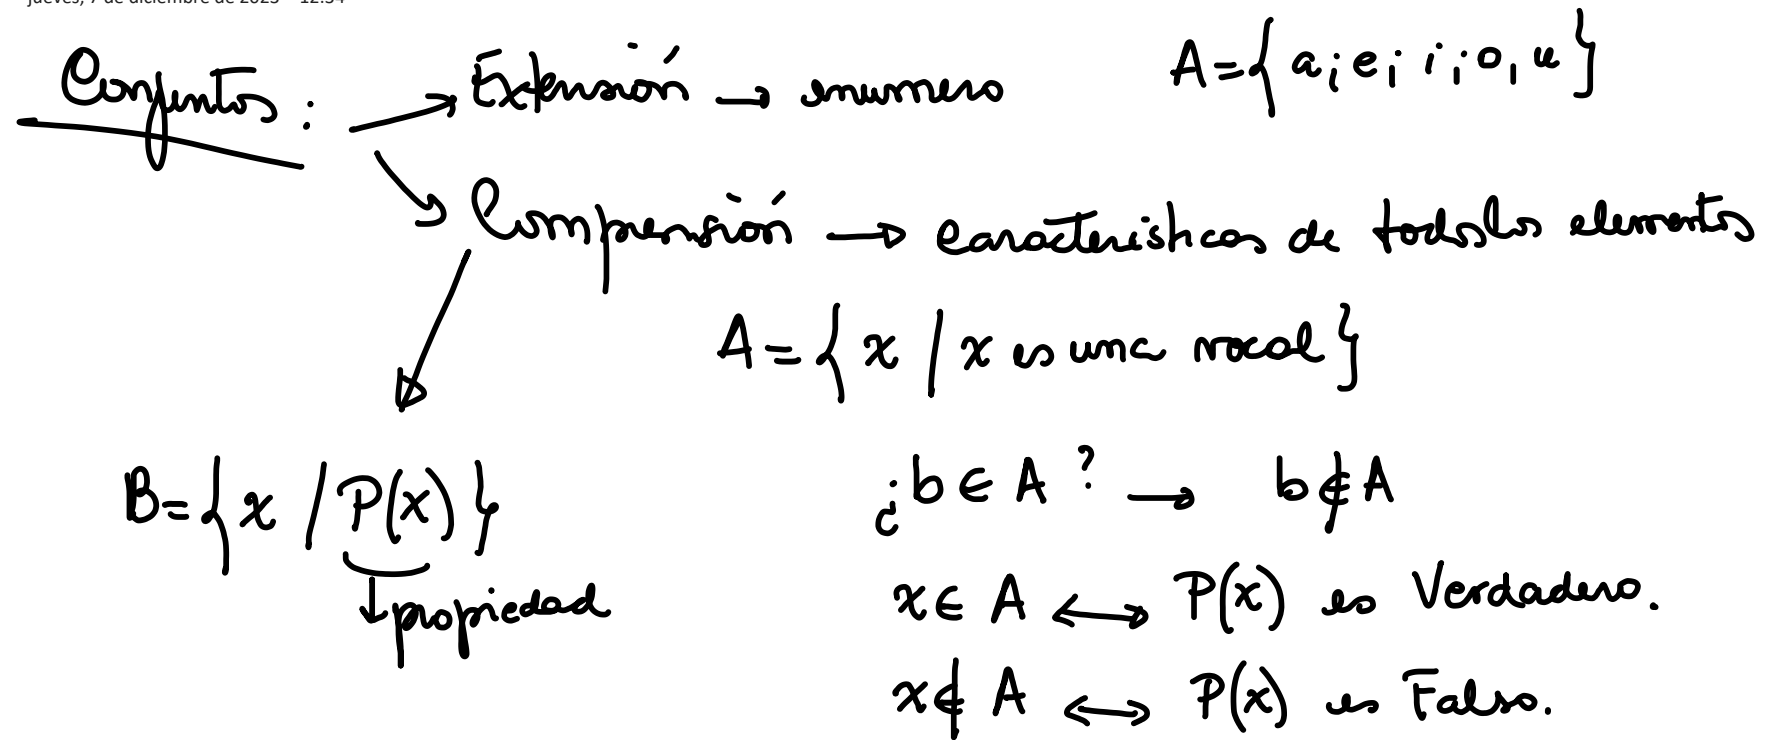 jueves, 7 de diciembre de 2023 12:54
Conjuntos : → Extensión → enumero A={ a; e; i; o, u }
Comprensión → características de todos los elementos
A={ x / x es una vocal }
B={ x / P(x) } ¿b ∈ A ? → b ∉ A
↓ propiedad x ∈ A ↔ P(x) es Verdadero.
x ∉ A ↔ P(x) es Falso.